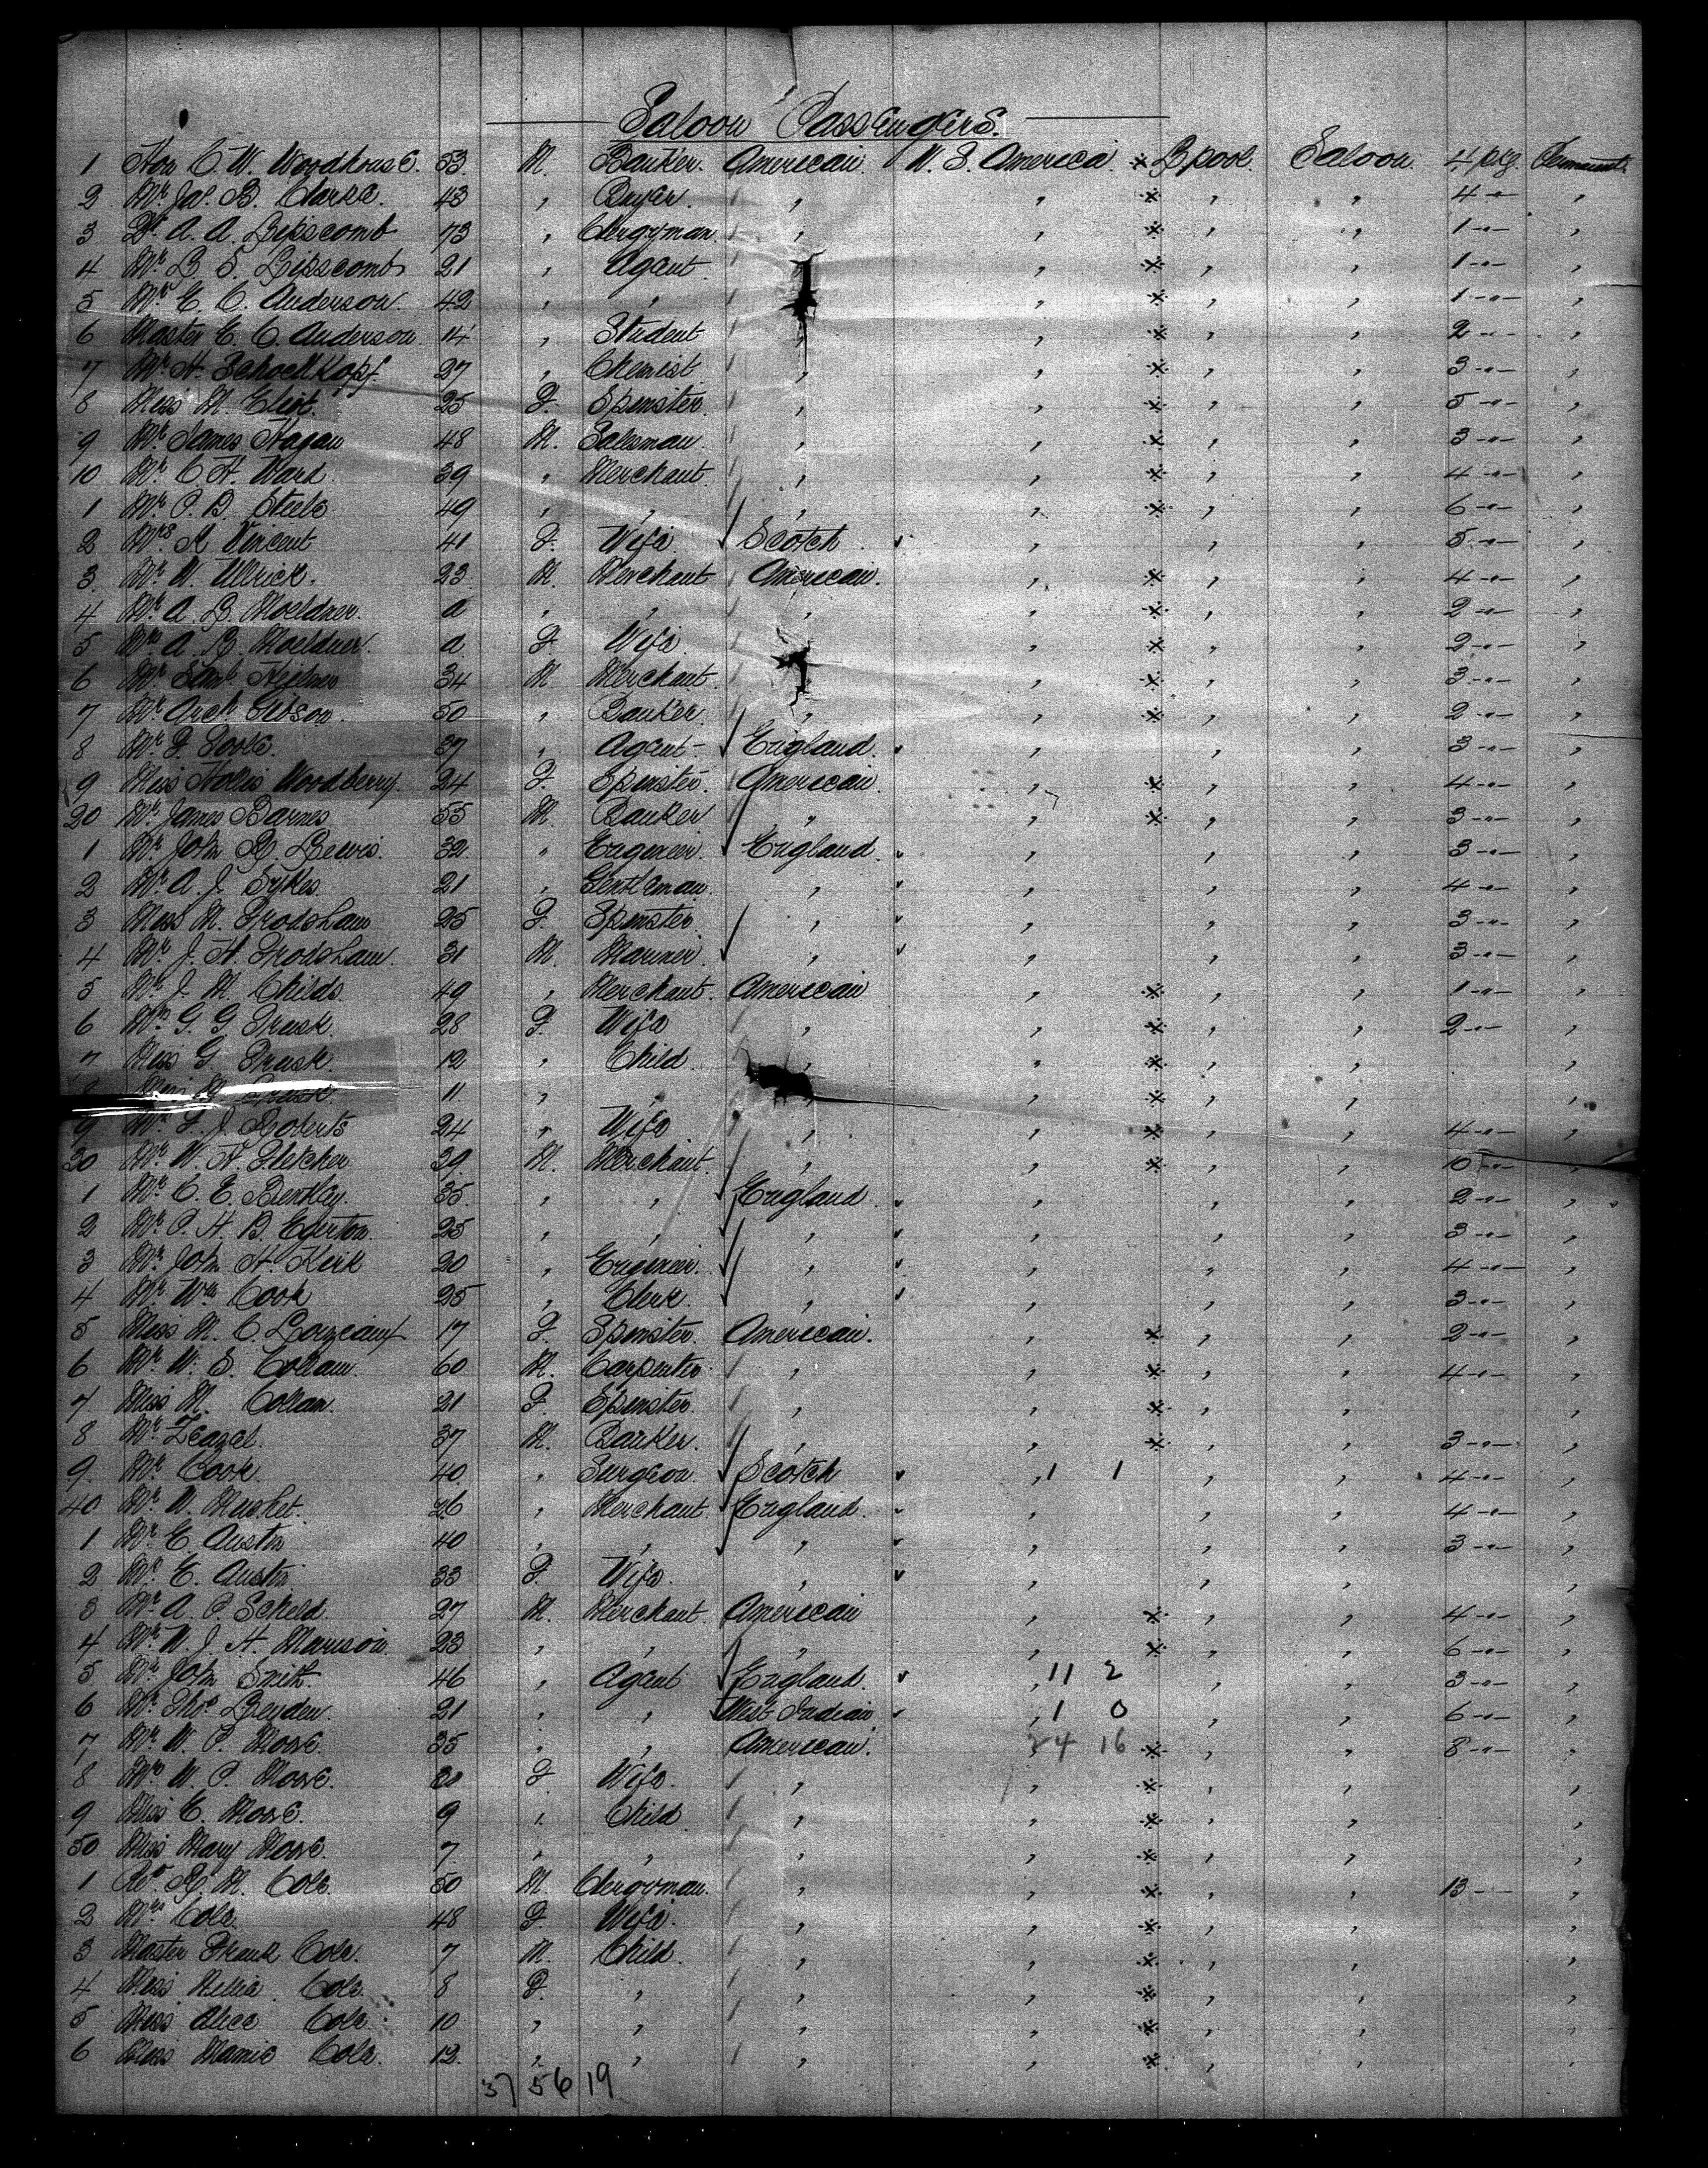 Saloon Passengers.
1 Hon C. W. Woodhouse. 53. M. Banker. American. U. S. America. × L'pool. Saloon. 4 pkg. Permanent
2 Mr Jas. B. Clarke. 43 , Buyer. , , × , , 4 -"- ,
3 Dr A. A. Lipscomb 73 , Clergyman. , , × , , 1 -"- ,
4 Mr B. S. Lipscomb 21 , Agent. , , × , , 1 -"- ,
5 Mr E. C. Anderson. 42 , , , × , , 1 -"- ,
6 Master E. C. Anderson. 14 , Student , × , , 2 -"- ,
7 Mr H. Schoellkopf. 27 , Chemist , , × , , 3 -"- ,
8 Miss M. Eliot. 25 F. Spinster. , , × , , 5 -"- ,
9 Mr James Hagan 48 M. Salesman. , , × , , 3 -"- ,
10 Mr C. H. Ward. 39 , Merchant. , , × , , 4 -"- ,
1 Mr P. B. Steele 49 , , , , × , , 6 -"- ,
2 Mrs A Vincent 41 F. Wife. Scotch , , , 5 -"- ,
3. Mr W. Ullrick. 23 M. Merchant American. , × , , 4 -"- ,
4 Mr A. B. Moeldner. a , , , , × , , 2 -"- ,
5 Mrs A. B. Moeldner. a F. Wife. , , × , , 2 -"- ,
6 Mr Saml 34 M Merchant. , × , , 3 -"- ,
7 Mr Arch Gibson. 50 , Banker. , , × , , 2 -"- ,
8 Mr F. Poole. 37 , Agent - England. , , , 3 -"- ,
9 Miss Hollis Woodberry. 24 F. Spinster. American. , × , , 4 -"- ,
20 Mr James Barnes 55 M. Banker , , × , , 3 -"- ,
1 Mr John R. Lewis. 32. " Engineer. England. , , , 3 -"- ,
2 Mr A. J. Sykes 21 , Gentleman. , , , , 4 -"- ,
3 Miss M. Frodsham 25 F. Spinster. , , , , 3 -"- ,
4 Mr J. H. Frodsham. 31 M. Mariner. , , , , 3 -"- ,
5 Mr J. M. Childs. 49 , Merchant. American , × , , 1 -"- ,
6 Mrs G. G. Trask. 28 F. Wife , , × , , 2 -"- ,
7 Miss G Trask. 12 , Child. , , × , , ,
8 Miss Trask. 11 , , , , × , , ,
9 Mrs F. J. Roberts 24 , Wife , , × , , 4 -"- ,
30 Mr W. H. Fletcher 39. M. Merchant. , , × , , 10 -"- ,
1 Mr C. E. Bentley. 35. , , England. , , , 2 -"- ,
2 Mr P. H. B. Egerton. 25 , , , , , , 3 -"- ,
3 Mr John H. Kirk 20 , Engineer. , , , , 4 -"- ,
4 Mr Wm Cook 25 , Clerk. , , , , 3 -"- ,
5 Miss M. C. 17 F. Spinster. American. , × , , 2 -"- ,
6 Mr W. S. Colham. 60 M. Carpenter. , , × , , 4 -"- ,
7 Miss M. Colham. 21 F. Spinster. , , × , , ,
8 Mr Teasel. 37 M. Banker. , , × , , 3 -"- ,
9. Mr Cook. 40. , Surgeon Scotch , 1 1 , , 4 -"- ,
40 Mr W. Mushet. 26 , Merchant. England. , , , 4 -"- ,
1 Mr E. Austin 40 , , , , , , 3 -"- ,
2 Mrs E. Austin 33 F. Wife. , , , , ,
3 Mr A. P. Scheld. 27 M. Merchant. American , × , , 4 -"- ,
4 Mr W. J. H. Marison. 23 , , , , × , , 6 -"- ,
5 Mr John Smith. 46 , Agent England. , 11 2 , , 3 -"- ,
6 Mr Thos Leyden. 21 , , West Indian , 1 0 , , 6 -"- ,
7 Mr W. P. Morse. 35 , , American. 24 16 × , , 8 -"- ,
8 Mrs W. P. Morse. F Wife. , , × , , ,
9 Miss E. Morse. 9 , Child , , × , , ,
50 Miss Mary Morse. 7 , , , , × , , ,
1 Rev R. M. Cole. 50 M. Clergyman. , , × , , 13 -- ,
2 Mrs Cole. 48 F. Wife. , , × , , ,
3 Master Frank Cole. 7 M. Child. , , × , , ,
4 Miss Nellie Cole. 8 F. , , , × , , ,
5 Miss Alice Cole. 10 , , , , × , , ,
6 Miss Mamie Cole. 12. , , , , × , , ,
37 56 19